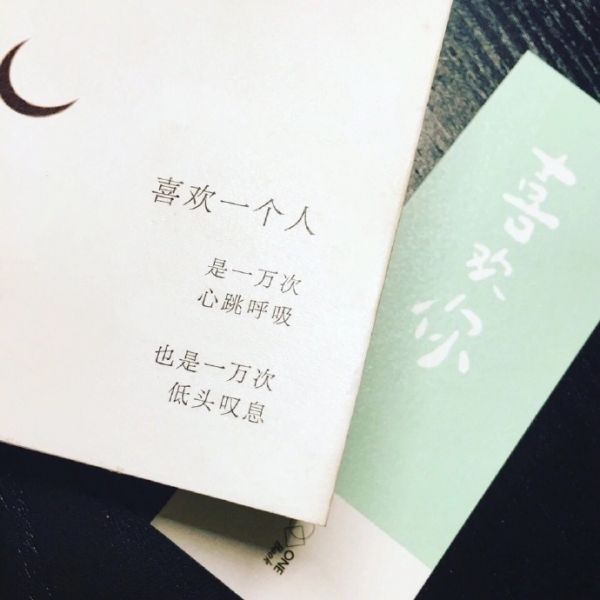 喜欢一个人
是一万次
心跳呼吸
也是一万次
低头叹息
喜欢你
ONE
Book